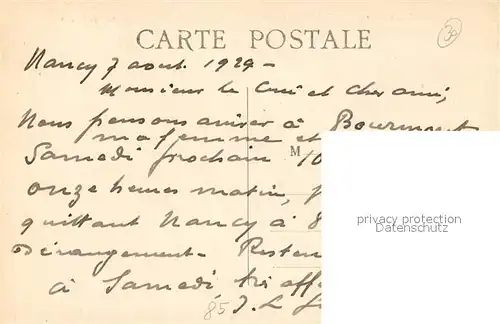 CARTE POSTALE
30
Nancy 7 aout 1929 -
Monsieur le Curé et cher ami,
Nous pensons arriver à Bourmont
ma femme et
Samedi prochain M 10
onze heures matin,
quittant Nancy à 8
Dérangement - Reste
à Samedi, très aff
85 J. L
privacy protection
Datenschutz